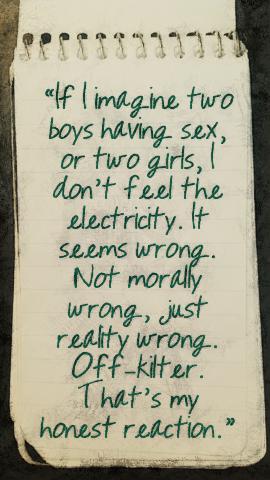 “If I imagine two
boys having sex,
or two girls, I
don't feel the
electricity. It
seems wrong.
Not morally
wrong, just
reality wrong.
Off-kilter.
That's my
honest reaction.”